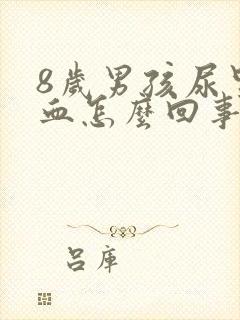 8歲男孩尿
血怎麼回事
呂庫